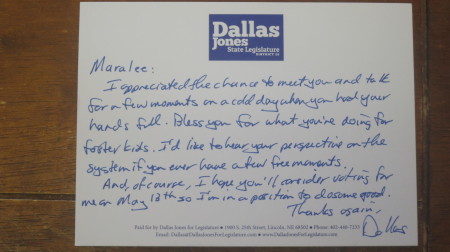 Dallas
Jones
State Legislature
Maralee:
I appreciated the chance to meet you and talk
for a few moments on a cold day when you had your
hands full. Bless you for what you're doing for
foster kids. I'd like to hear your perspective on the
system if you ever have a few free moments.
And, of course, I hope you'll consider voting for
me on May 13th so I'm in a position to do some good.
Thanks again,
Dallas
Paid for by Dallas Jones for Legislature • 1900 S. 25th Street, Lincoln, NE 68502 • Phone: 402-440-7223
Email: Dallas@DallasJonesForLegislature.com • www.DallasJonesForLegislature.com